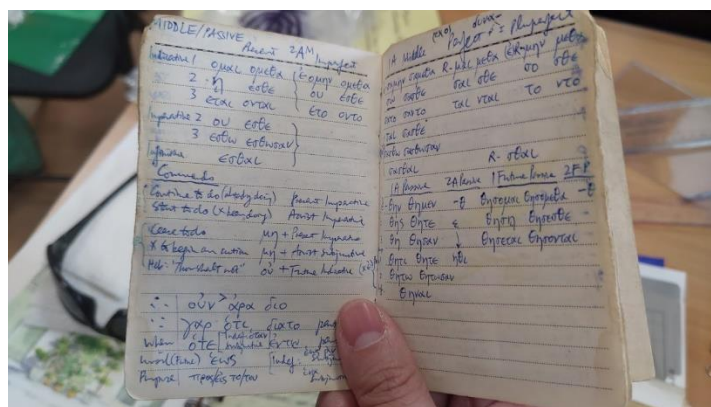 MIDDLE/PASSIVE
Present 2AM Imperfect
Indicative 1 ομαι ομεθα εομην ομεθα
2 ῃ εσθε ου εσθε
3 εται ονται ετο οντο
Imperative 2 ου εσθε
3 εσθω εσθωσαν
Infinitive εσθαι
Commands
Continue to do (already doing) Present Imperative
Start to do (X being done) Aorist Imperative
Cease to do μη + Present Imperative
X to begin an action μη + Aorist Subjunctive
"Thou shalt not" ού + Future Indicative
∴ οὐν > ἀρα διο
∵ γαρ ὁτι, διατο
When ὁτε ἐντω
ἑως
Purpose προς εις το/του
1A Middle Perfect Pluperfect
σαμην σαμεθα R-μαι μεθα εR-μην μεθα
σω σασθε σαι σθε σο σθε
σατο σαντο ται νται το ντο
σαι σασθε
σασθω σασθωσαν
σασθαι R-σθαι
1A Passive 2A Passive 1 Future Passive 2FP
θην θημεν -θ θησομαι θησομεθα -θ
θης θητε θηση θησεσθε
θη θησαν θησεται θησονται
θητι θητε ηθι
θητω θητωσαν
θηναι